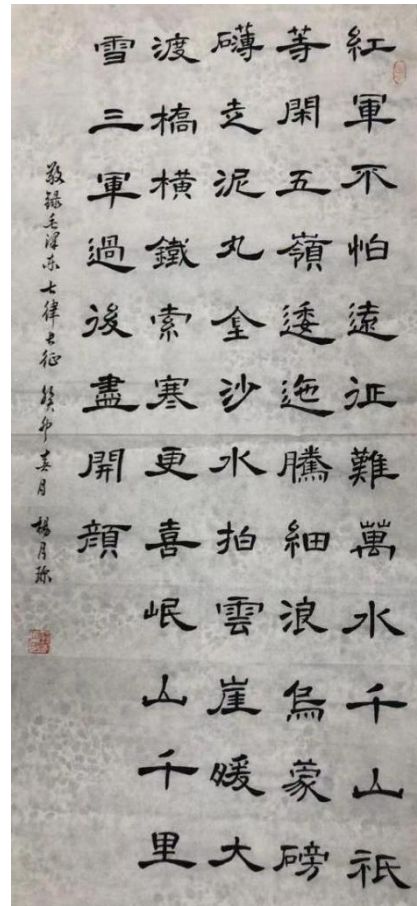 紅軍不怕遠征難萬水千山祇
等閑五嶺逶迤騰細浪烏蒙磅
礴走泥丸金沙水拍雲崖暖大
渡橋橫鐵索寒更喜岷山千里
雪三軍過後盡開顏
敬錄毛澤東七律長征 癸卯春月 楊月珎